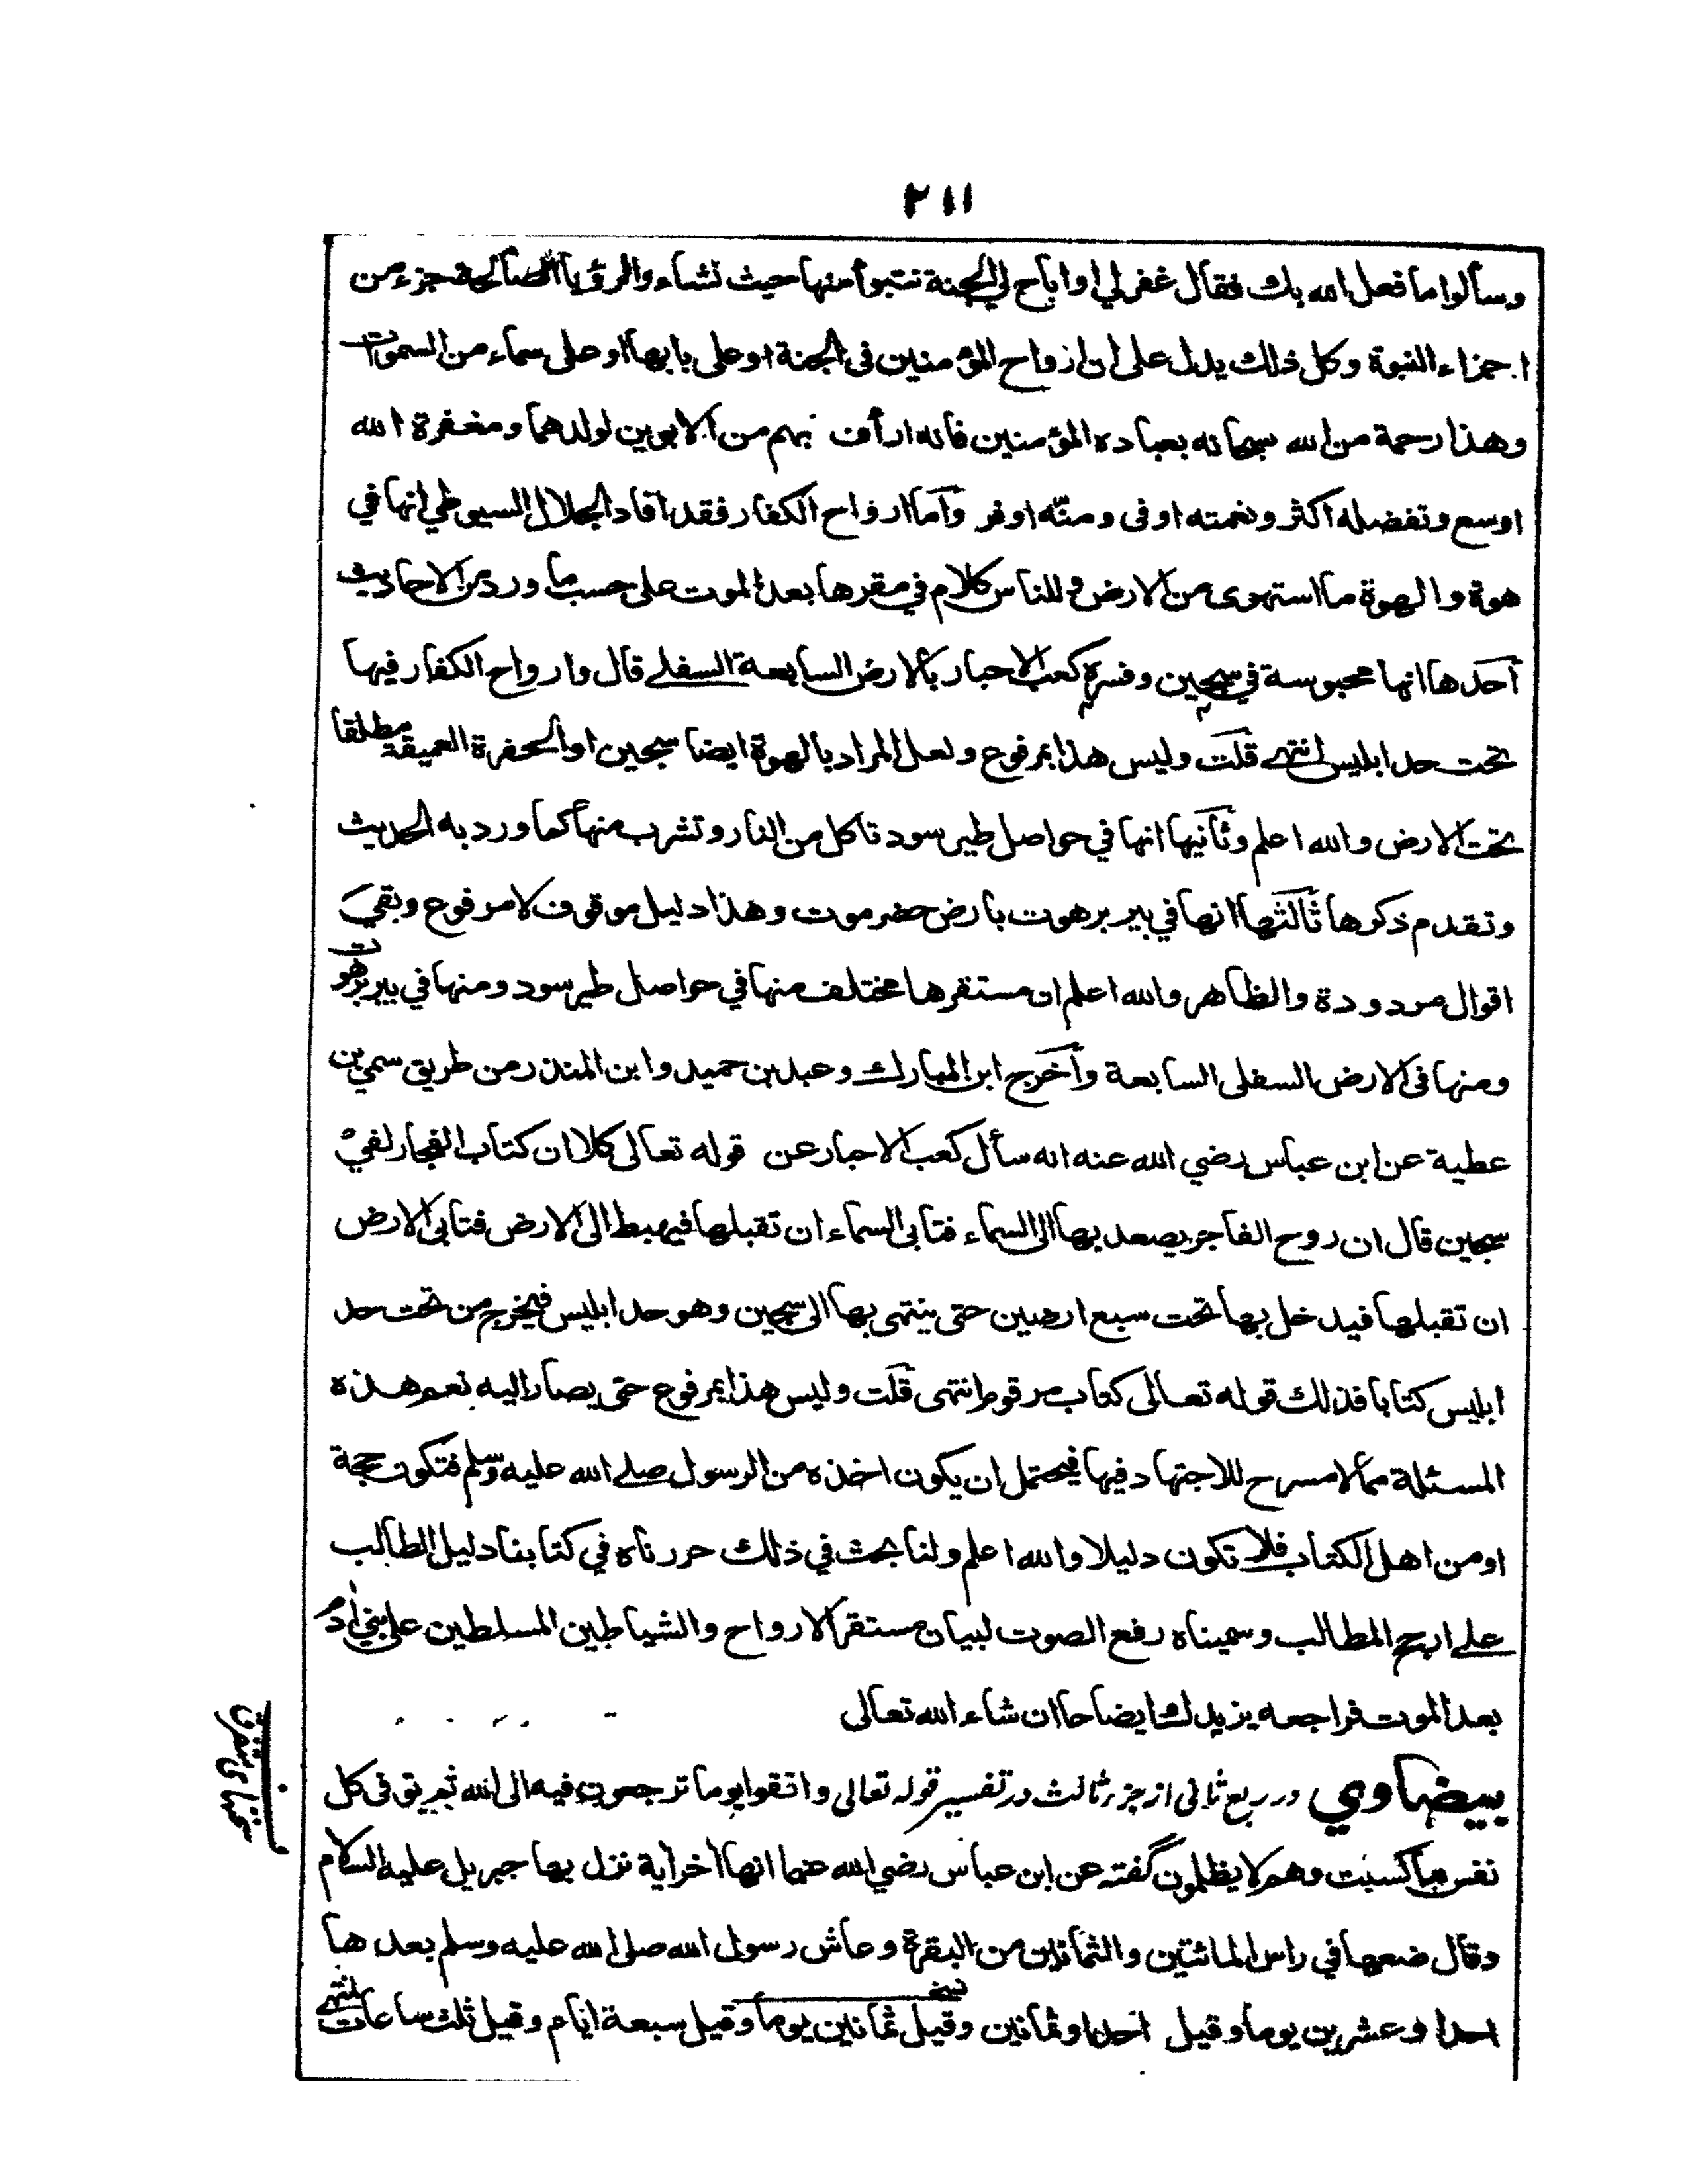 ٢١١
وسألوا ما فعل الله بك فقال غفر لي او اباح لي الجنة نتبوأ منها حيث نشاء والرؤيا الصالحة جزء من
اجزاء النبوة وكل ذلك يدل على ان ارواح المؤمنين فى الجنة او على بابها او على سماء من السموات
وهذا رحمة من الله سبحانه بعباده المؤمنين فانه ارأف بهم من الابوين لولدهما ومغفرة الله
اوسع وتفضله اكثر ونعمته اوفى ومنّه اوفر وأما ارواح الكفار فقد افاد الجلال السيوطي انها في
هوة والهوة ما استهوى من الارض وللناس كلام في مقرها بعد الموت على حسب ما ورد من الاحاديث
أحدها انها محبوسة في سجين وفسره كعب الاحبار بالارض السابعة السفلے قال وارواح الكفار فيها
تحت حد ابليس انتهى قلت وليس هذا بمرفوع ولعل المراد بالهوة ايضا سجين او الحفرة العميقة مطلقا
تحت الارض والله اعلم وثانيها انها في حواصل طير سود تاكل من النار وتشرب منها كما ورد به الحديث
وتقدم ذكرها ثالثها انها في بير برهوت بارض حضرموت وهذا دليل موقوف لا مرفوع وبقي
اقوال مردودة والظاهر والله اعلم ان مستقرها مختلف منها في حواصل طير سود ومنها في بير برهوت
ومنها فى الارض السفلى السابعة وأخرج ابن المبارك وعبد بن حميد وابن المنذر من طريق سمي بن
عطية عن ابن عباس رضي الله عنه انه سأل كعب الاحبار عن قوله تعالى كلا ان كتاب الفجار لفي
سجين قال ان روح الفاجر يصعد بها الى السماء فتابى السماء ان تقبلها فيهبط الى الارض فتابى الارض
ان تقبلها فيدخل بها تحت سبع ارضين حتى ينتهى بها الى سجين وهو حد ابليس فيخرج من تحت حد
ابليس كتابا فذلك قوله تعالى كتاب مرقوم انتهى قلت وليس هذا بمرفوع حتى يصار اليه نعم هذه
المسئلة مما لا مسرح للاجتهاد فيها فيحتمل ان يكون اخذه من الرسول صلے الله عليه وسلم فتكون حجة
او من اهل الكتاب فلا تكون دليلا والله اعلم ولنا بحث في ذلك حررناه في كتابنا دليل الطالب
علے ارجح المطالب وسميناه رفع الصوت لبيان مستقر الارواح والشياطين المسلطين على بني ادم
بعد الموت فراجعه يزيدك ايضاحا ان شاء الله تعالى
بيضاوي در ربع ثانى از جزء ثالث در تفسير قوله تعالى واتقوا يوما ترجعون فيه الى الله ثم توفى كل
نفس ما كسبت وهم لا يظلمون گفته عن ابن عباس رضي الله عنهما انها اخر اية نزل بها جبريل عليه السلام
وقال ضعها في راس المائتين والثمانين من البقرة وعاش رسول الله صلى الله عليه وسلم بعدها
احدا وعشرين يوما وقيل احدا وثمانين وقيل ثمانين يوما وقيل سبعة ايام وقيل ثلث ساعات انتهى